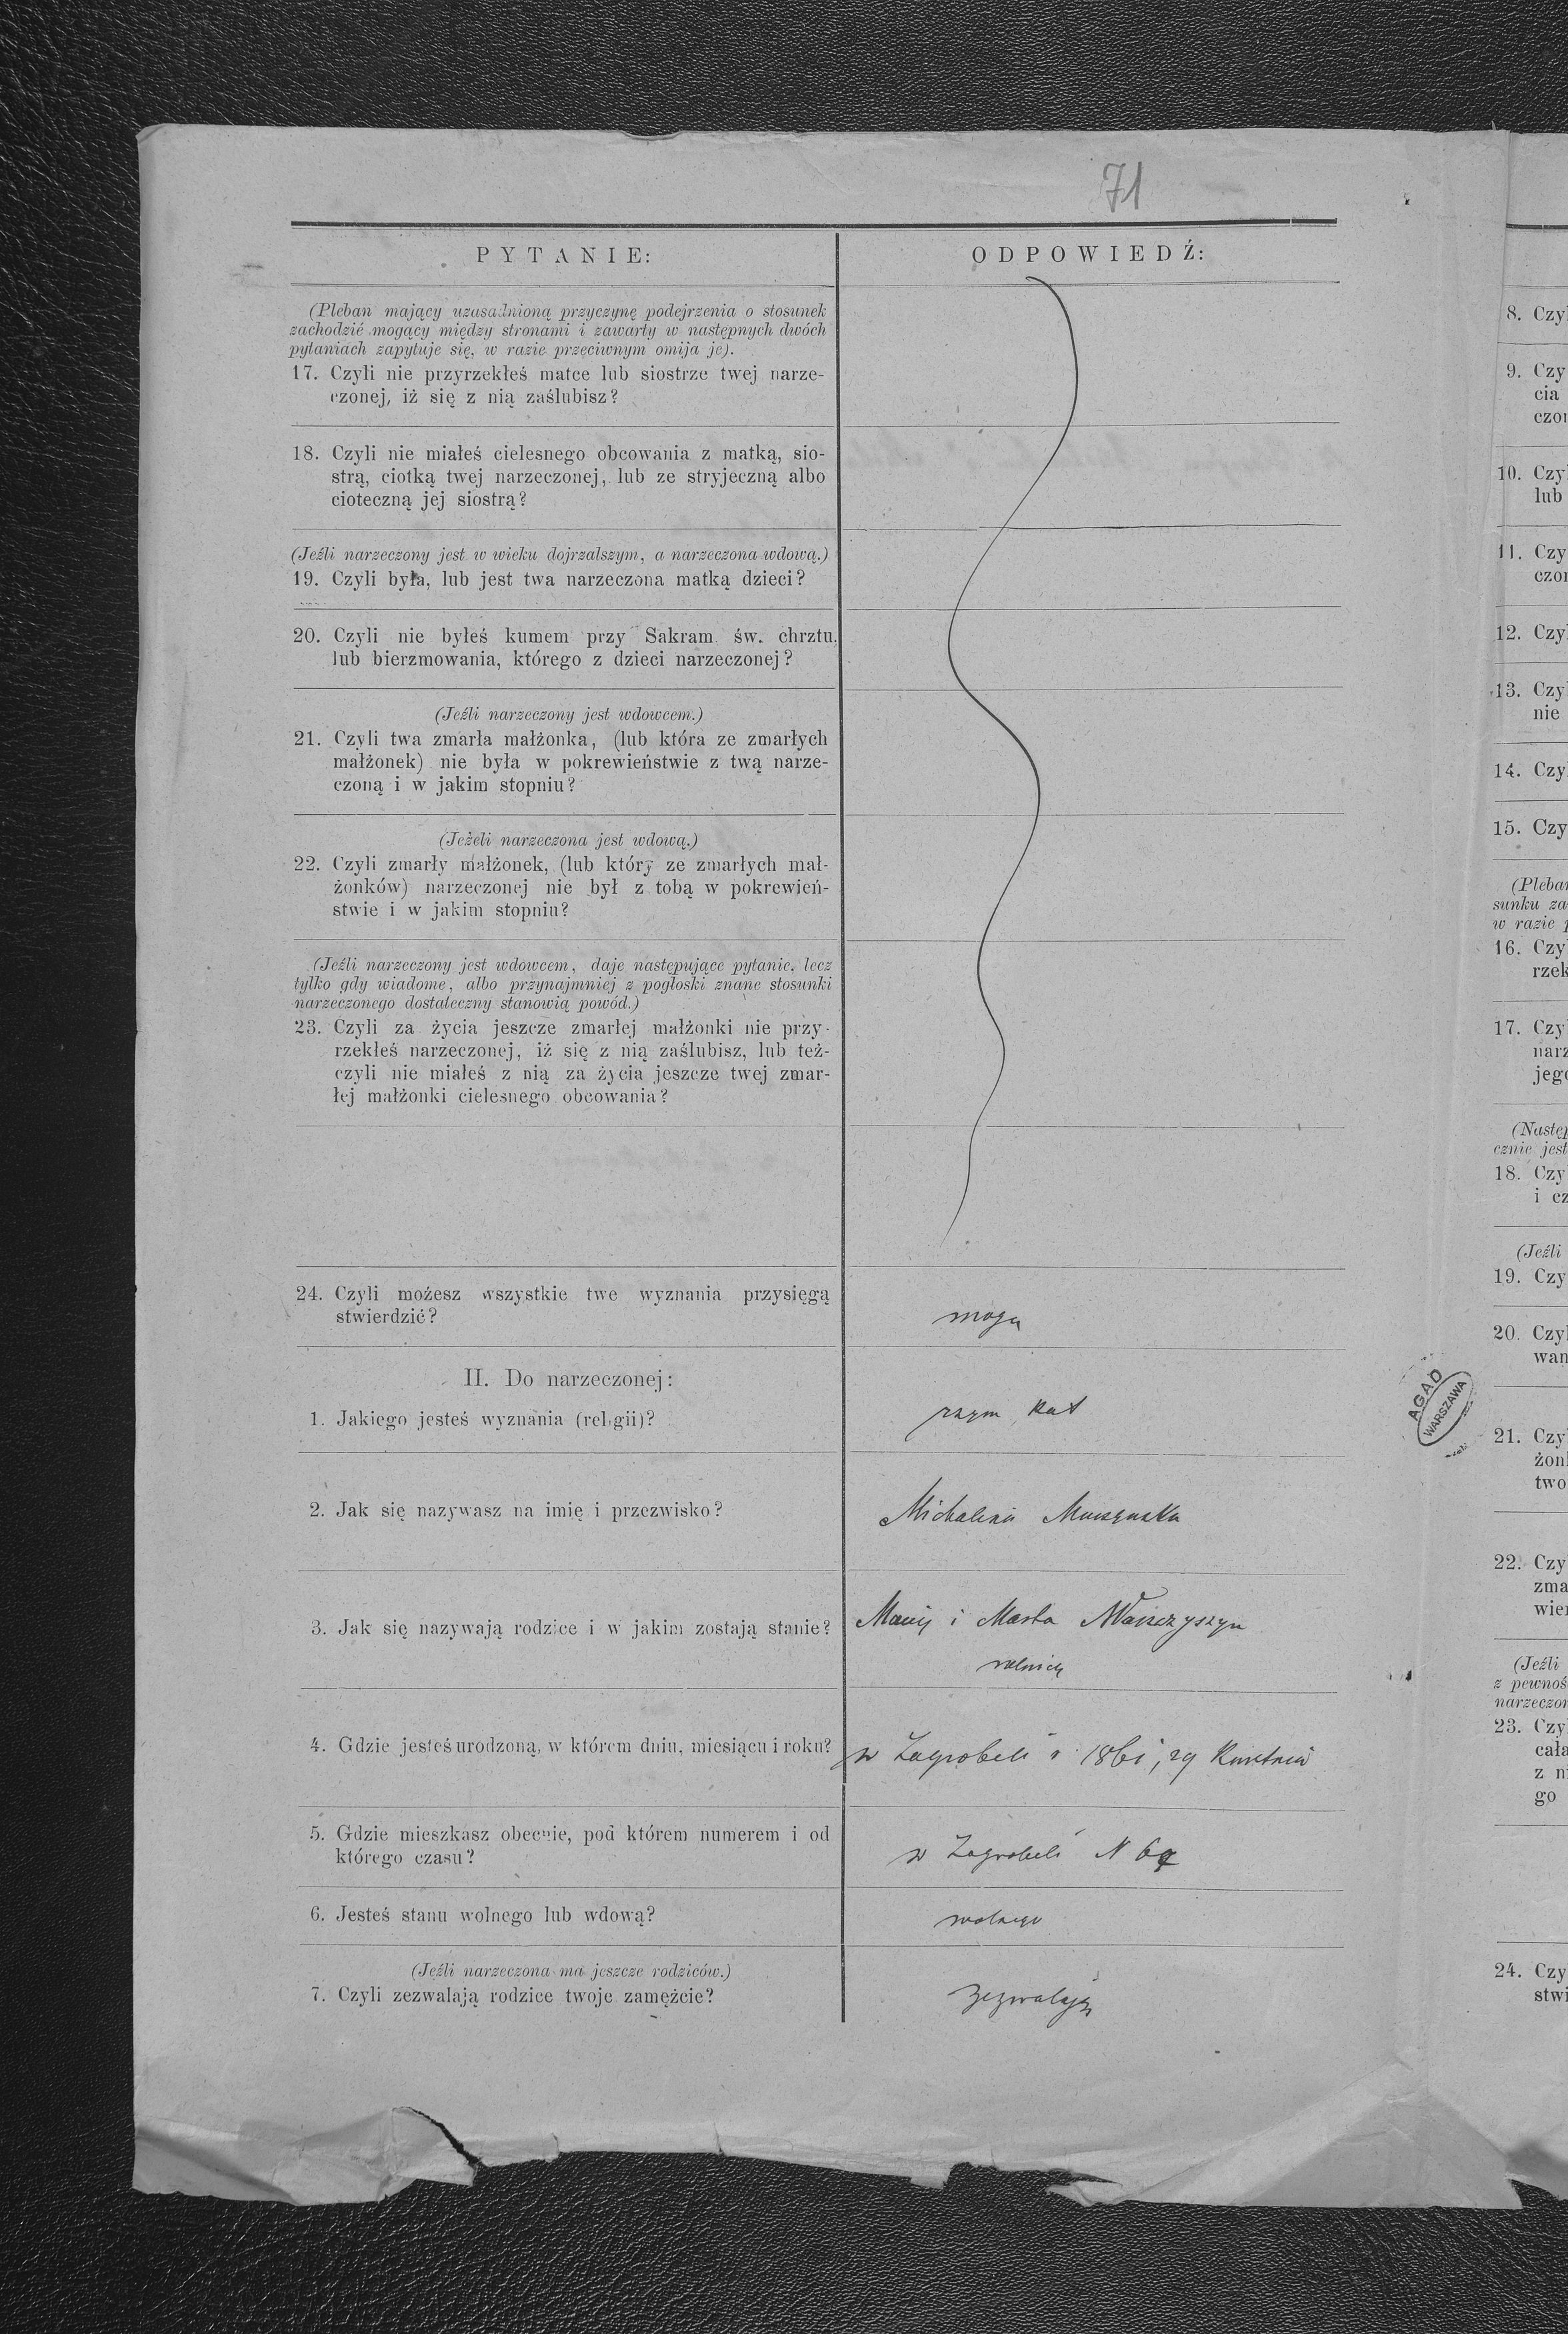 71
PYTANIE:
ODPOWIEDŹ:
(Pleban mający uzasadnioną przyczynę podejrzenia o stosunek
zachodzić mogący między stronami i zawarty w następnych dwóch
pytaniach zapytuje się, w razie przeciwnym omija je).
17. Czyli nie przyrzekłeś matce lub siostrze twej narze-
czonej, iż się z nią zaślubisz?
18. Czyli nie miałeś cielesnego obcowania z matką, sio-
strą, ciotką twej narzeczonej, lub ze stryjeczną albo
cioteczną jej siostrą?
(Jeźli narzeczony jest w wieku dojrzalszym, a narzeczona wdową.)
19. Czyli była, lub jest twa narzeczona matką dzieci?
20. Czyli nie byłeś kumem przy Sakram. św. chrztu
lub bierzmowania, którego z dzieci narzeczonej?
(Jeźli narzeczony jest wdowcem.)
21. Czyli twa zmarła małżonka, (lub która ze zmarłych
małżonek) nie była w pokrewieństwie z twą narze-
czoną i w jakim stopniu?
(Jeżeli narzeczona jest wdową.)
22. Czyli zmarły małżonek, (lub który ze zmarłych mał-
żonków) narzeczonej nie był z tobą w pokrewień-
stwie i w jakim stopniu?
(Jeźli narzeczony jest wdowcem, daje następujące pytanie, lecz
tylko gdy wiadome, albo przynajmniej z pogłoski znane stosunki
narzeczonego dostateczny stanowią powód.)
23. Czyli za życia jeszcze zmarłej małżonki nie przy-
rzekłeś narzeczonej, iż się z nią zaślubisz, lub też-
czyli nie miałeś z nią za życia jeszcze twej zmar-
łej małżonki cielesnego obcowania?
24. Czyli możesz wszystkie twe wyznania przysięgą
stwierdzić?
mogę
II. Do narzeczonej:
1. Jakiego jesteś wyznania (religii)?
rzym kat
2. Jak się nazywasz na imię i przezwisko?
Michalina
3. Jak się nazywają rodzice i w jakim zostają stanie?
Maciej i Marta
rolnicy
4. Gdzie jesteś urodzoną, w którem dniu, miesiącu i roku?
w Zagrobeli r 1861, 29 Kwietnia
5. Gdzie mieszkasz obecnie, pod którem numerem i od
którego czasu?
w Zagrobeli N
6. Jesteś stanu wolnego lub wdową?
wolnego
(Jeźli narzeczona ma jeszcze rodziców.)
7. Czyli zezwalają rodzice twoje zamężcie?
zezwalają
8. Czyl
9. Czy
cia
czon
10. Czyl
lub
11. Czy
czon
12. Czyl
13. Czyl
nie
14. Czyl
15. Czy
(Pleban
sunku za
w razie p
16. Czy
rzek
17. Czy
narz
jego
(Następ
cznie jest
18. Czy
i cz
(Jeźli
19. Czy
20. Czyl
wan
AGAD
WARSZAWA
21. Czy
żonk
two
22. Czy
zma
wier
(Jeźli
z pewnoś
narzeczon
23. Czy
cała
z n
go
24. Czy
stwi